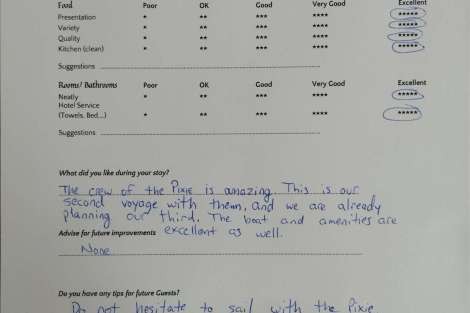 Food Poor OK Good Very Good Excellent
Presentation * ** *** **** *****
Variety * ** *** **** *****
Quality * ** *** **** *****
Kitchen (clean) * ** *** **** *****
Suggestions
Rooms/ Bathrooms Poor OK Good Very Good Excellent
Neatly * ** *** **** *****
Hotel Service
(Towels, Bed...) * ** *** **** *****
Suggestions
What did you like during your stay?
The crew of the Pixie is amazing. This is our
second voyage with them, and we are already
planning our third. The boat and amenities are
excellent as well.
Advise for future improvements
None
Do you have any tips for future Guests?
Do not hesitate to sail with the Pixie